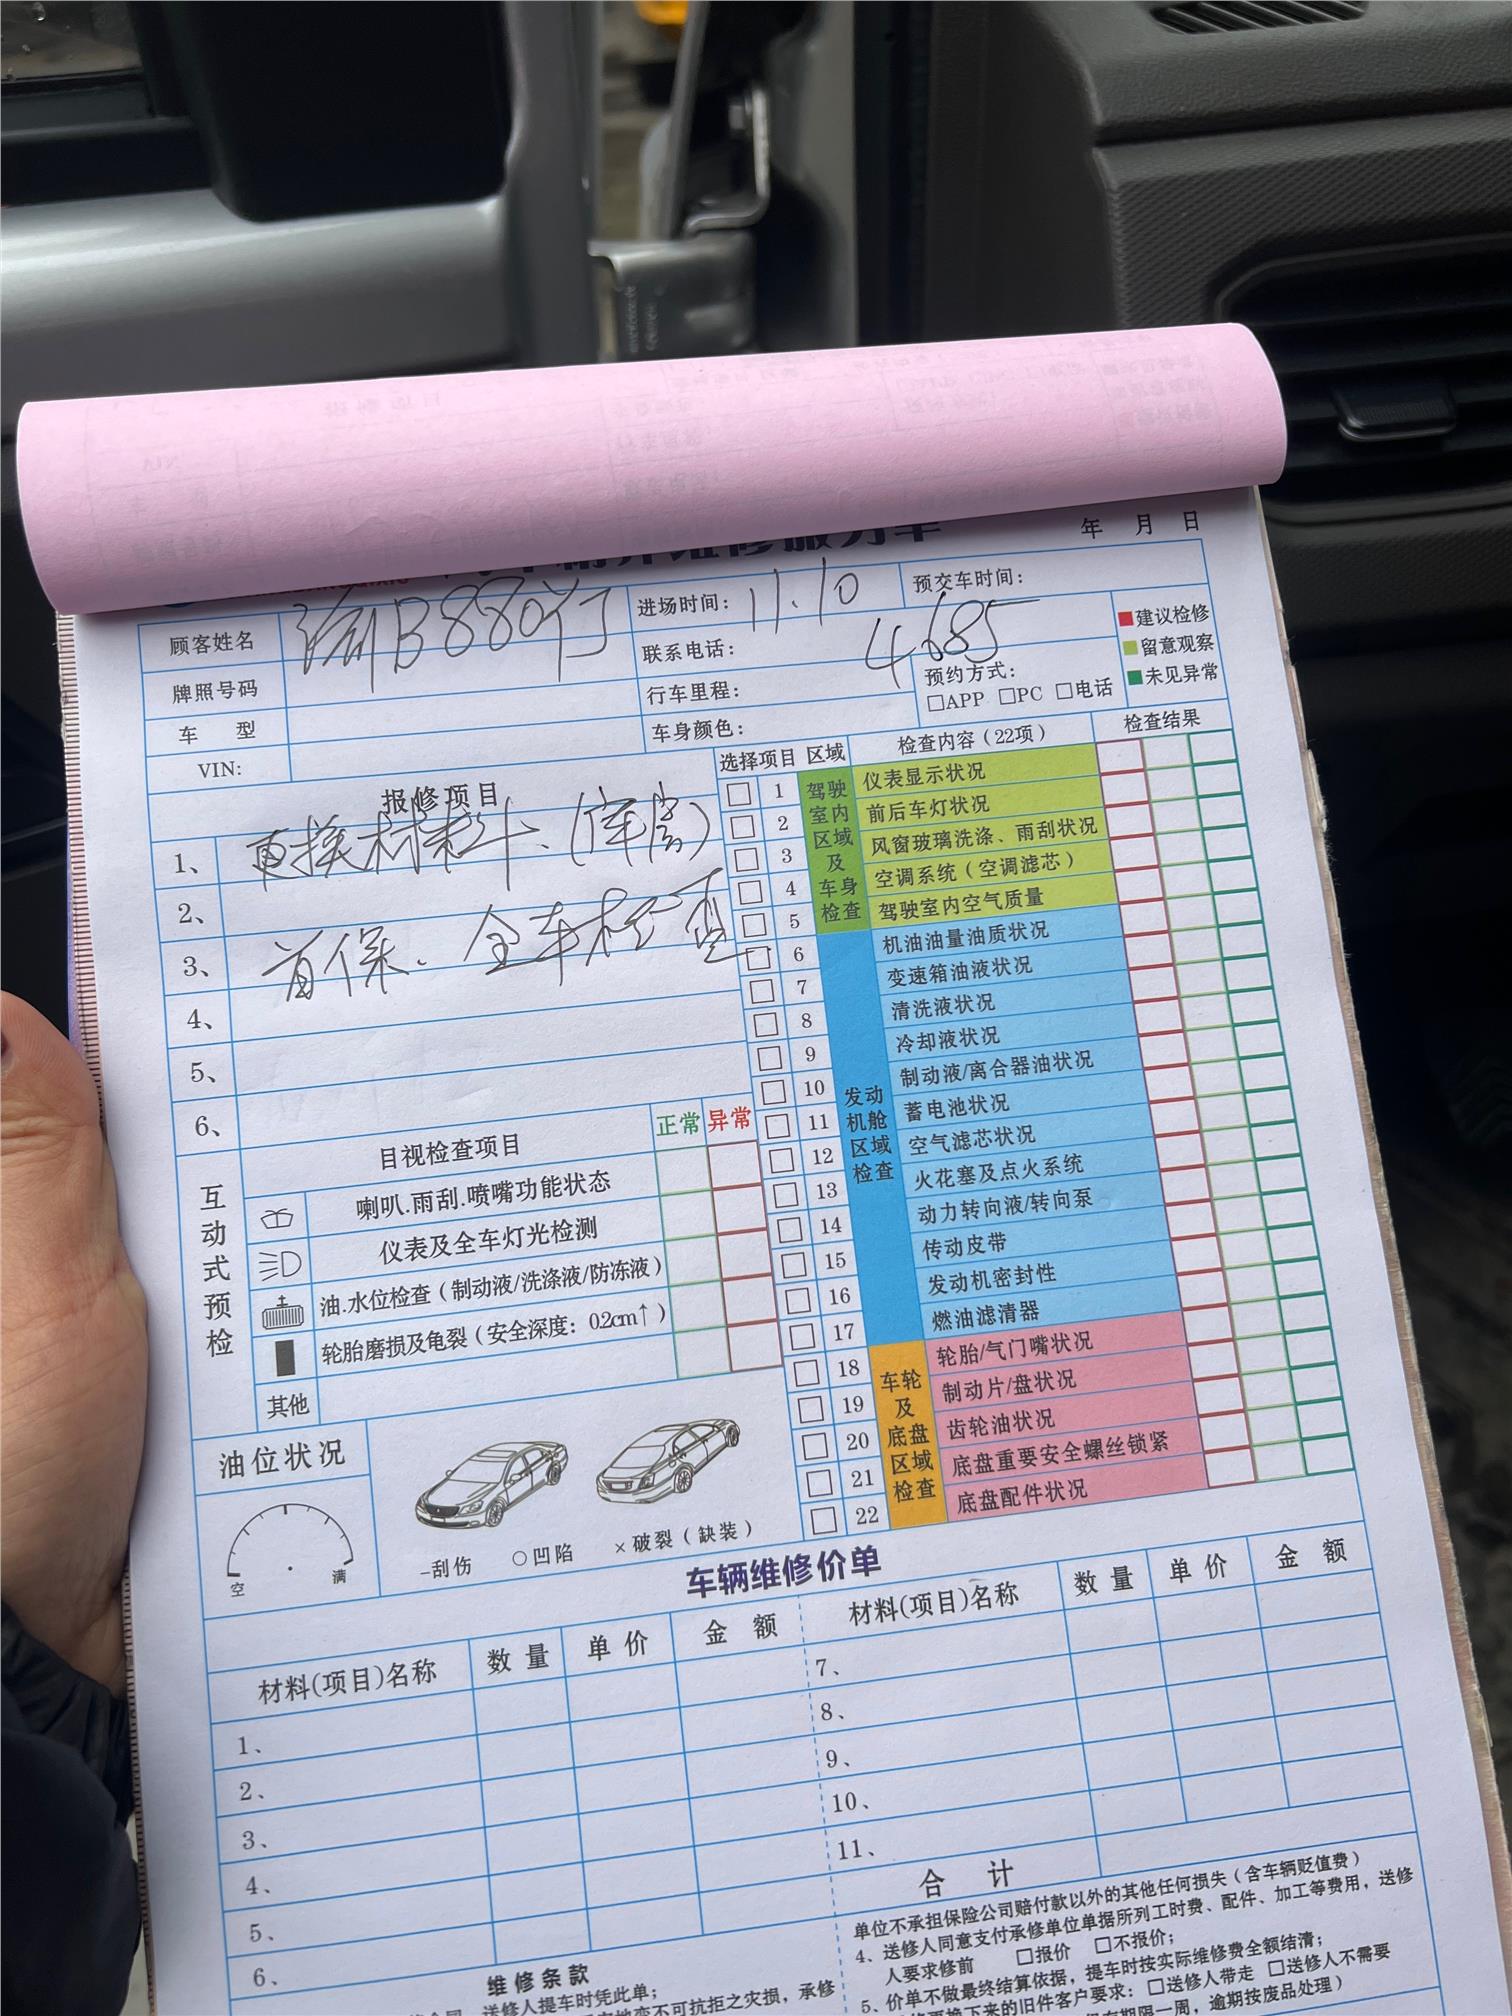 年 月 日
顾客姓名
进场时间： 11.10
预交车时间：
牌照号码
联系电话：
车 型
行车里程： 4685
预约方式：
□APP □PC □电话
VIN:
车身颜色：
建议检修
留意观察
未见异常
报修项目
1、 更换材料、
2、
3、 首保、全车检查
4、
5、
6、
选择项目 区域 检查内容（22项） 检查结果
驾驶室内区域及车身检查
1 仪表显示状况
2 前后车灯状况
3 风窗玻璃洗涤、雨刮状况
4 空调系统（空调滤芯）
5 驾驶室内空气质量
发动机舱区域检查
6 机油油量油质状况
7 变速箱油液状况
8 清洗液状况
9 冷却液状况
10 制动液/离合器油状况
11 蓄电池状况
12 空气滤芯状况
13 火花塞及点火系统
14 动力转向液/转向泵
15 传动皮带
16 发动机密封性
17 燃油滤清器
车轮及底盘区域检查
18 轮胎/气门嘴状况
19 制动片/盘状况
20 齿轮油状况
21 底盘重要安全螺丝锁紧
22 底盘配件状况
互动式预检
目视检查项目 正常 异常
喇叭.雨刮.喷嘴功能状态
仪表及全车灯光检测
油.水位检查（制动液/洗涤液/防冻液）
轮胎磨损及龟裂（安全深度：0.2cm↑）
其他
油位状况
空 满
–刮伤 ○凹陷 ×破裂（缺装）
车辆维修价单
材料(项目)名称 数 量 单 价 金 额
材料(项目)名称 数 量 单 价 金 额
1、
2、
3、
4、
5、
6、
7、
8、
9、
10、
11、
合 计
维修条款
送修人提车时凭此单；
不可抗拒之灾损，承修
单位不承担保险公司赔付款以外的其他任何损失（含车辆贬值费）
4、送修人同意支付承修单位单据所列工时费、配件、加工等费用，送修
人要求修前 □报价 □不报价；
5、价单不做最终结算依据，提车时按实际维修费全额结清；
下来的旧件客户要求：□送修人带走 □送修人不需要
期限一周，逾期按废品处理）